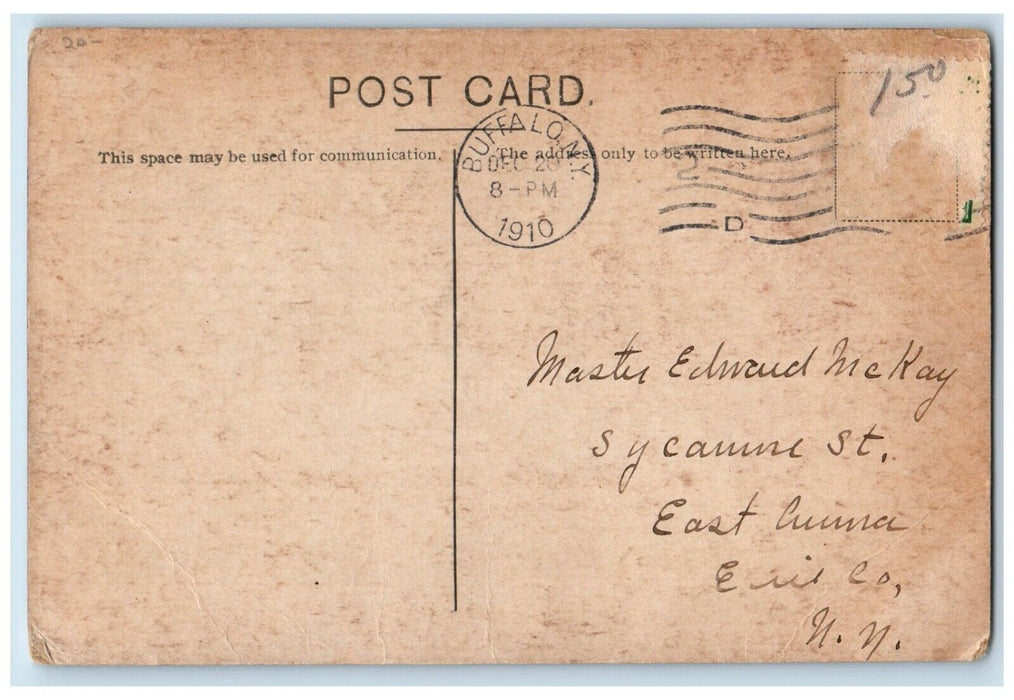 20-
150
POST CARD.
This space may be used for communication.
The address only to be written here.
BUFFALO, N.Y.
DEC 20
8-PM
1910
D
Master Edward McKay
Sycamore St.
East Aurora
Erie Co,
N. Y.